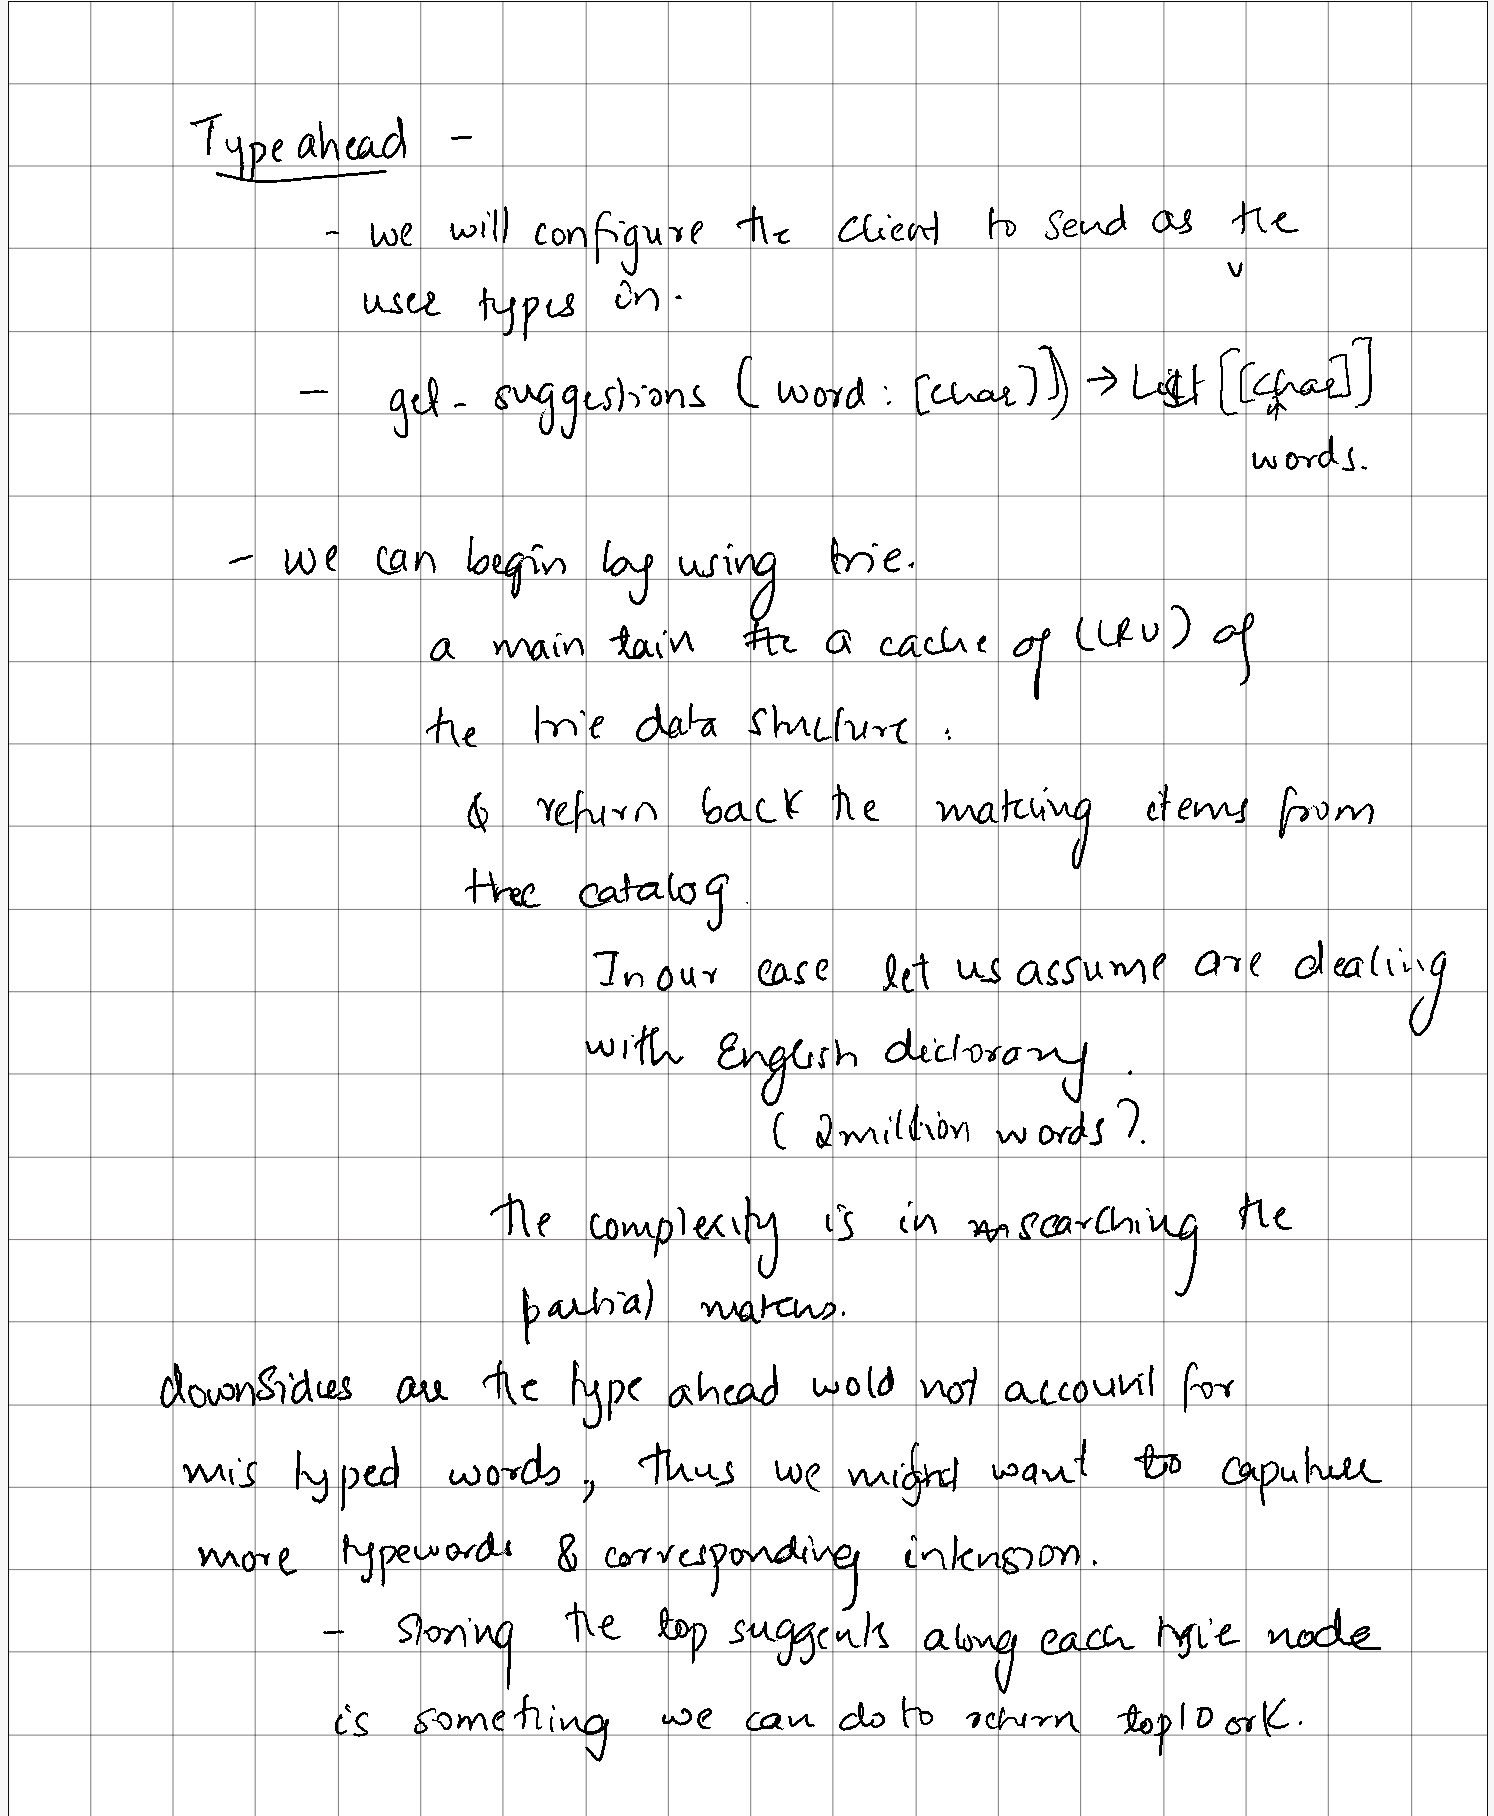 Typeahead -
- we will configure the client to send as the
user types in.
- get-suggestions (word: [char])) → List [[char]]
words.
- we can begin by using trie.
a maintain the a cache of (LRU) of
the trie data structure.
& return back the matching items from
the catalog.
In our case let us assume are dealing
with English dictorary.
(2 million words?
The complexity is in searching the
partial matches.
downsides are the type ahead wold not account for
mis typed words, thus we might want to caputure
more typewords & corresponding intension.
- storing the top suggents along each trie node
is something we can do to return top 10 or K.